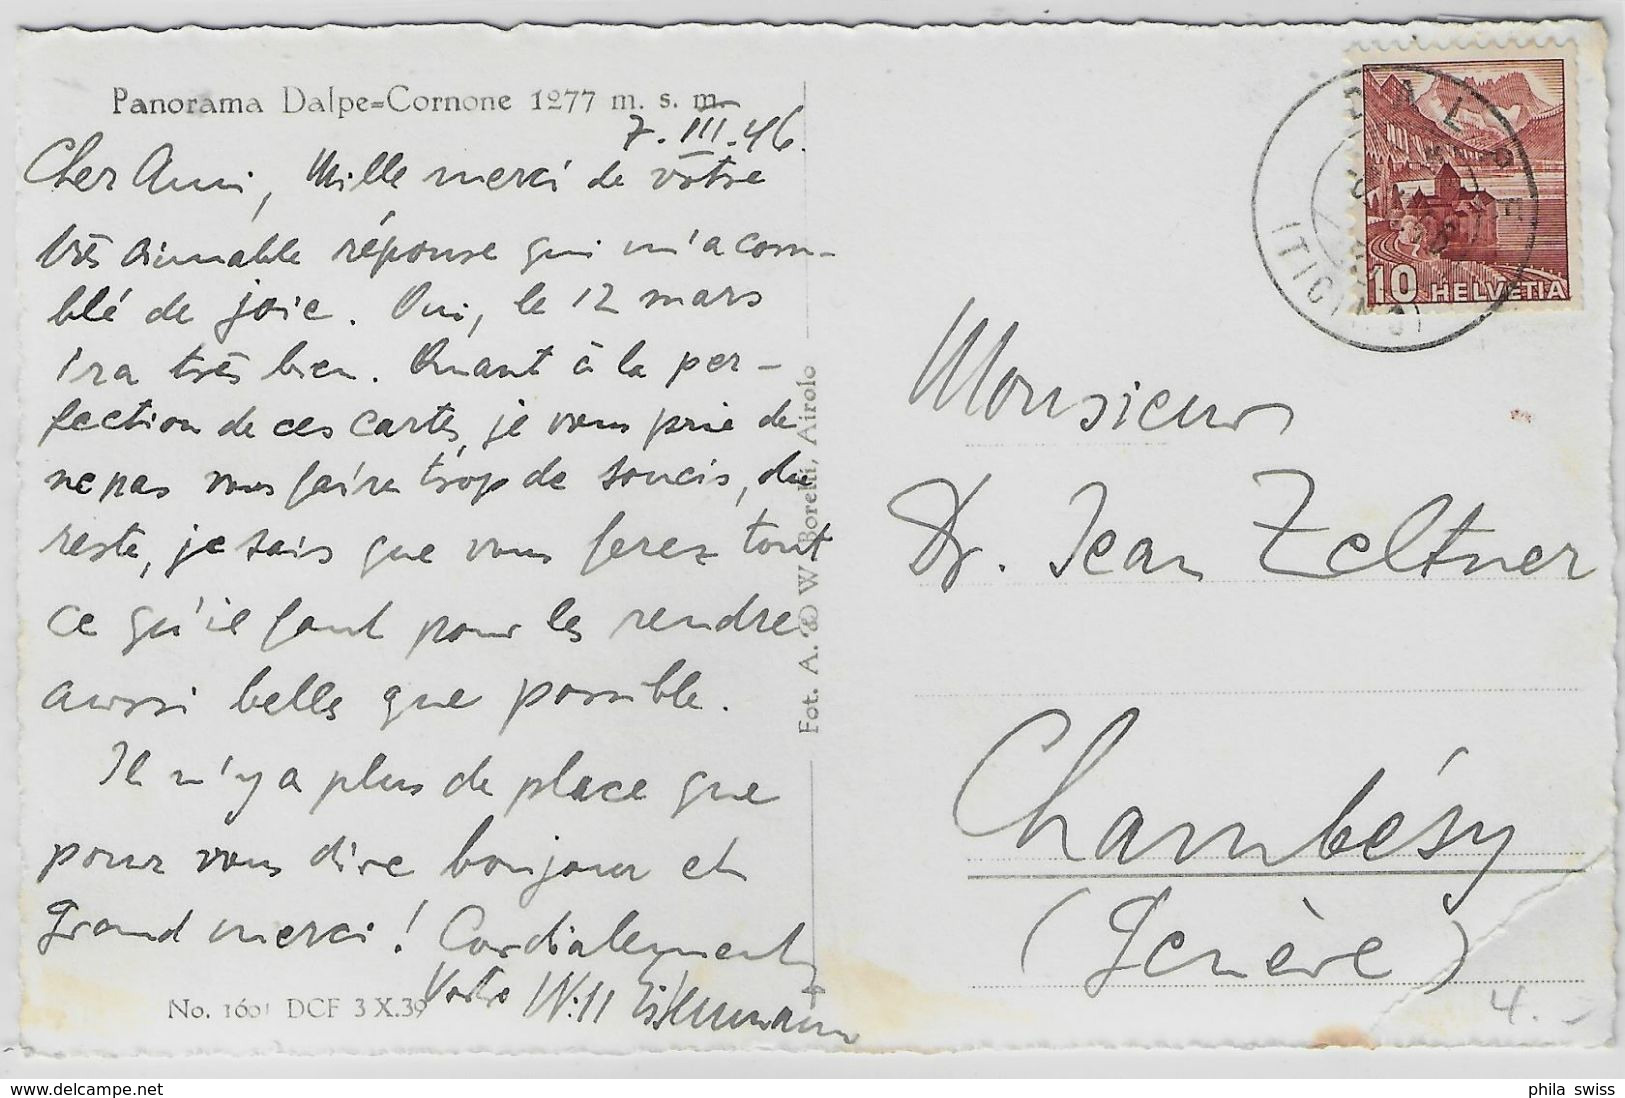 Panorama Dalpe=Cornone 1277 m. s. m.
7. III. 46.
Cher Ami, Mille merci de vôtre
très aimable réponse qui m'a com-
blé de joie. Oui, le 12 mars
ira très bien. Quant à la per-
fection de ces cartes, je vous prie de
ne pas vous faire trop de soucis, du
reste, je sais que vous ferez tout
ce qu'il faut pour les rendre
aussi belles que possible.
Il n'y a plus de place que
pour vous dire bonjour et
grand merci! Cordialement
Votre Willi
No. 1601 DCF 3 X.39
Fot. A. & W. Borelli, Airolo
DALPE
(TICINO)
10 HELVETIA
Monsieur
Dr. Jean Zeltner
Chambésy
(Genève)
4.-
www.delcampe.net
phila swiss